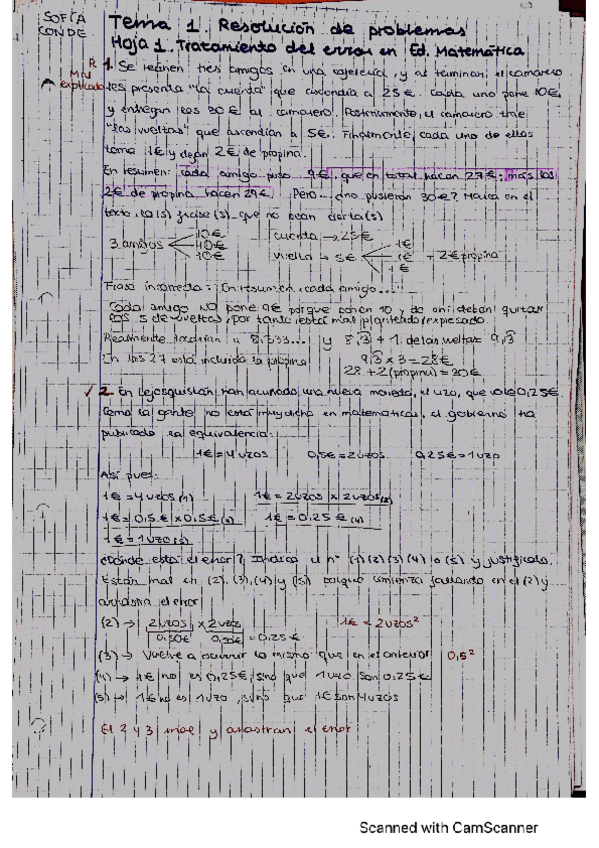 SOFÍA
CONDE
Tema 1. Resolución de problemas
Hoja 1. Tratamiento del error en Ed. Matemática
1. Se reúnen tres amigos en una cafetería, y al terminar, el camarero
les presenta "la cuenta" que ascendía a 25€. Cada uno pone 10€,
y entregan los 30€ al camarero. Posteriormente, el camarero trae
"las vueltas" que ascendían a 5€. Finalmente, cada uno de ellos
toma 1€ y dejan 2€ de propina.
En resumen: cada amigo puso 9€, que en total hacen 27€; más los
2€ de propina, hacen 29€. Pero... ¿no pusieron 30€? Marca en el
texto, la(s) frase(s) que no sean cierta(s)
3 amigos
10€
10€
10€
cuenta → 25€
vuelta → 5€
1€
1€
1€
+ 2€ propina
Frase incorrecta: En resumen, cada amigo....
Cada amigo NO pone 9€ porque ponen 10 y de ahí deben quitar
los 5 de vueltas, por tanto, está mal planteado/expresado.
Realmente tendrían a 8,333... y 8,3 + 1 de las vueltas 9,3
En los 27 está incluida la propina
9,3 x 3 = 28€
28 + 2 (propina) = 30€
✓ 2. En Lejosquistán han acuñado una nueva moneda, el uzo, que vale 0,25€.
Como la gente no está muy ducha en matemáticas, el gobierno ha
publicado la equivalencia:
1€ = 4 uzos 0,5€ = 2 uzos 0,25€ = 1 uzo
Así pues:
1€ = 4 uzos (1) 1€ = 2 uzos x 2 uzos (2)
1€ = 0,5€ x 0,5€ (3) 1€ = 0,25€ (4)
1€ = 1 uzo (5)
¿Dónde está el error? Indica el nº (1) (2) (3) (4) o (5) y justifícalo.
Están mal en (2), (3), (4) y (5) porque comienza fallando en el (2) y
arrastra el error
(2) → 2 uzos x 2 uzos 1€ = 2 uzos²
0,50€ 0,50€ = 0,25€
(3) → Vuelve a ocurrir lo mismo que en el anterior 0,5²
(4) → 1€ no es 0,25€, sino que 1 uzo son 0,25€
(5) → 1€ no es 1 uzo, sino que 1€ son 4 uzos
El 2 y 3 mal y arrastran el error
Scanned with CamScanner